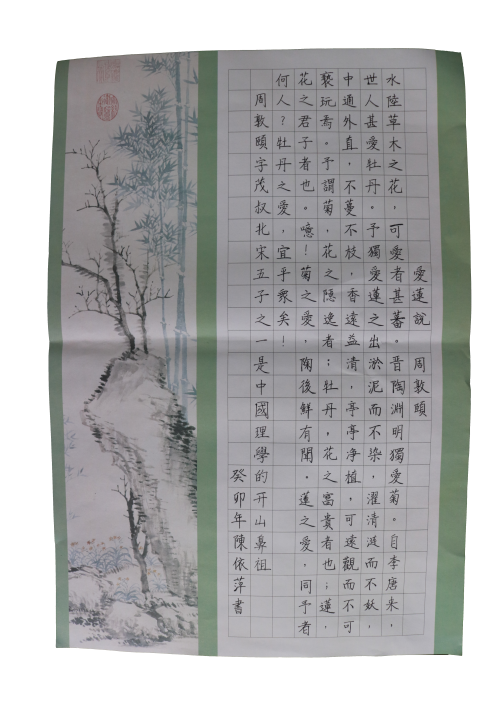 愛蓮說 周敦頤
水陸草木之花，可愛者甚蕃。晋陶淵明獨愛菊。自李唐来，
世人甚愛牡丹。予獨愛蓮之出淤泥而不染，濯清漣而不妖，
中通外直，不蔓不枝，香遠益清，亭亭净植，可遠觀而不可
褻玩焉。予謂菊，花之隱逸者；牡丹，花之富貴者也；蓮，
花之君子者也。噫！菊之愛，陶後鮮有聞。蓮之愛，同予者
何人？牡丹之愛，宜乎衆矣！
周敦頤字茂叔北宋五子之一是中國理學的开山鼻祖
癸卯年陳依萍書